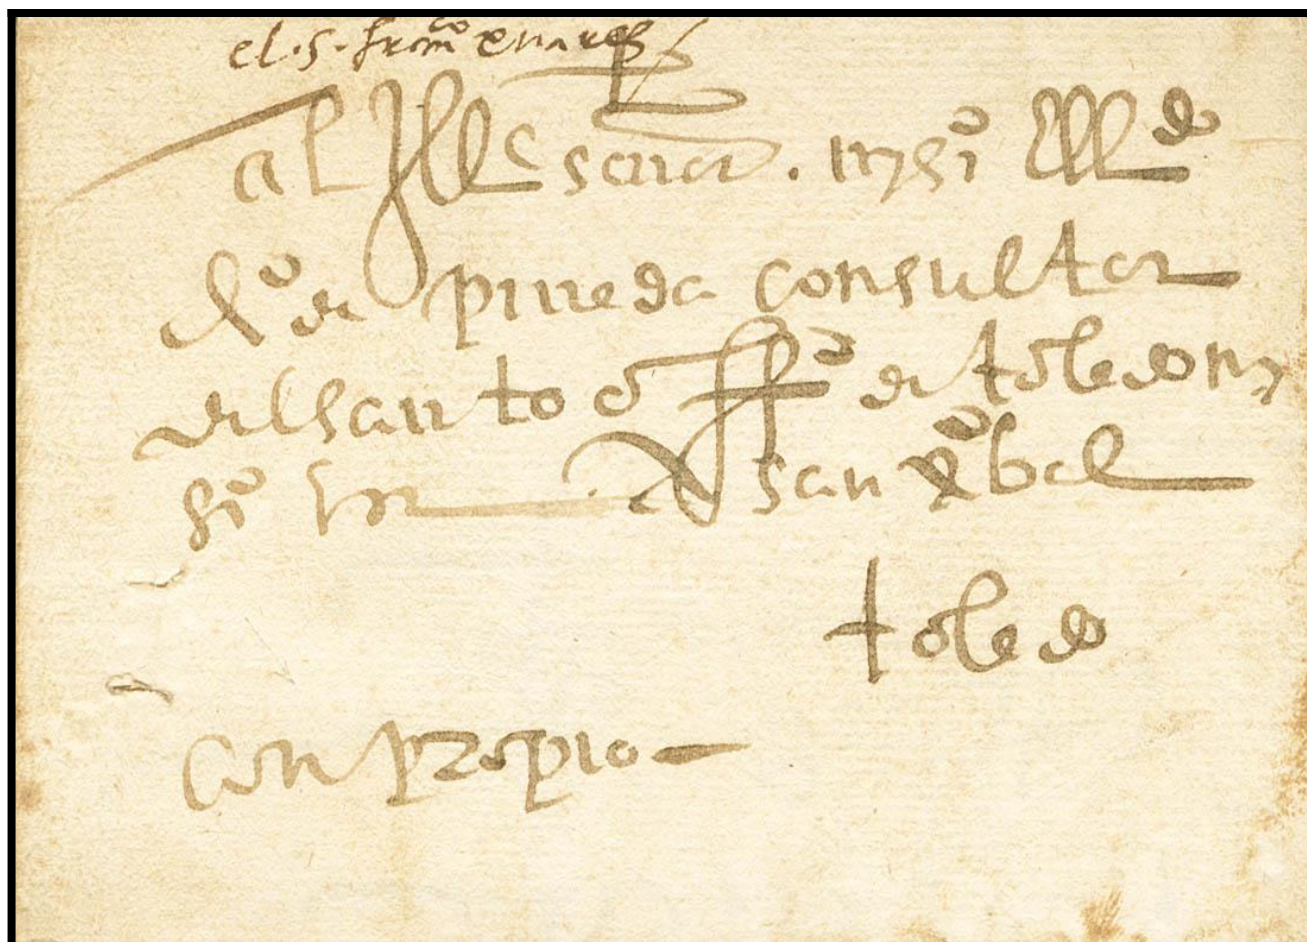 el .s. franco xuarez
al Ille senor . mi sor El ldo
xo de pineda consultor
del santo offo de toledo mi
sor en san xobal
toledo
con propio